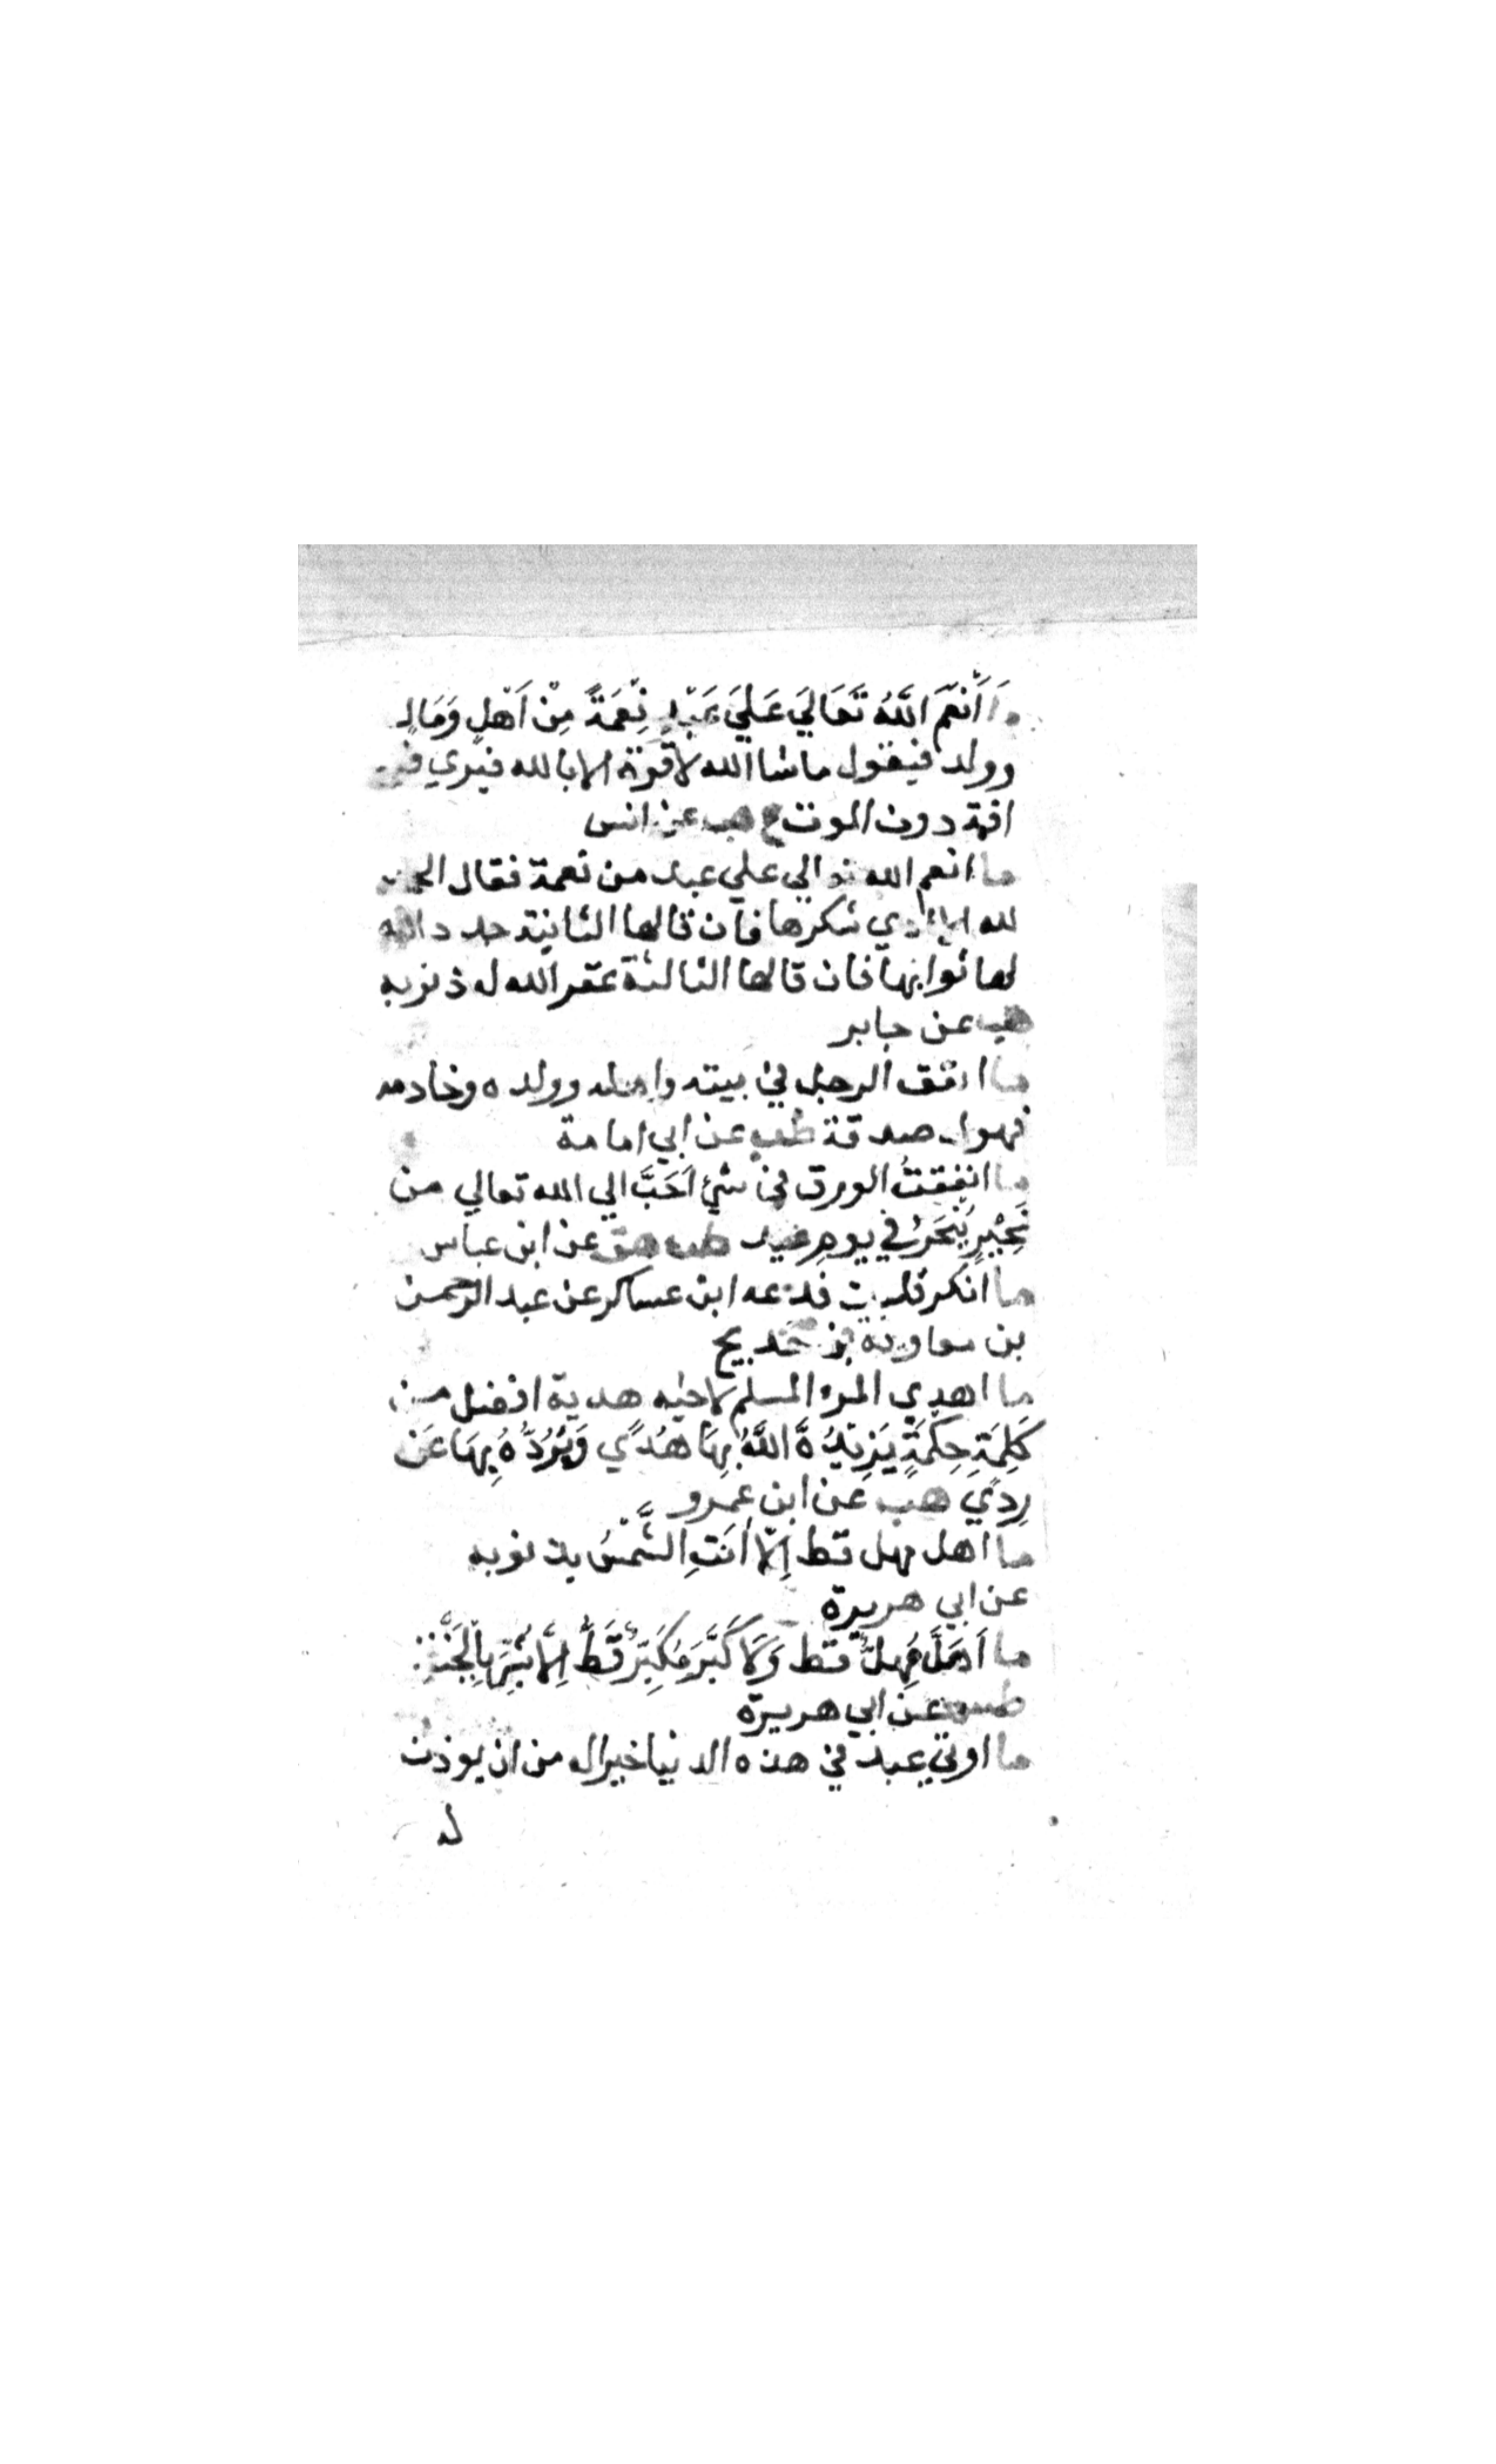 ما أَنْعَمَ اللَّهُ تَعَالَي عَلَيَ عَبْدٍ نِعْمَةً مِنْ اَهْلٍ وَمَالٍ
وولد فيقول ماشا الله لا قوة الا بالله فيري فيه
افة دون الموت ع هب عن انس
ما انعم الله تعالي علي عبد من نعمة فقال الحمد
لله الا ادي شكرها فان قالها الثانية جدد الله
لها ثوابها فان قالها الثالثة غفر الله له ذنوبه
هب عن جابر
ما انفق الرجل في بيته واهله وولده وخادمه
فهو له صدقة طب عن ابي امامة
ما انفقت الورق في شئ اَحَبَّ الي الله تعالي من
نَحِيْرٍ يُنْحَرُ في يوم عيد طب هق عن ابن عباس
ما انكر قلبك فدعه ابن عساكر عن عبد الرحمن
بن معاوية بن خديج
ما اهدي المرء المسلم لاخيه هدية افضل من
كَلِمَةِ حِكْمَةٍ يَزِيْدُهُ اللَّهُ بِهَا هُدًي وَيَرُدُّهُ بِهَا عَن
رِدًي هب عن ابن عمرو
ما اهل مهل قط إِلَّا أَبَتِ الشَّمْسُ بذنوبه
عن ابي هريرة
ما اَهَلَّ مُهِلٌّ قط وَلَا كَبَّرَ مُكَبِّرٌ قَطُّ إِلَّا بُشِّرَ بِالْجَنَّةِ
طس عن ابي هريرة
ما اوتي عبد في هذه الدنيا خيرا له من ان يوذن
له